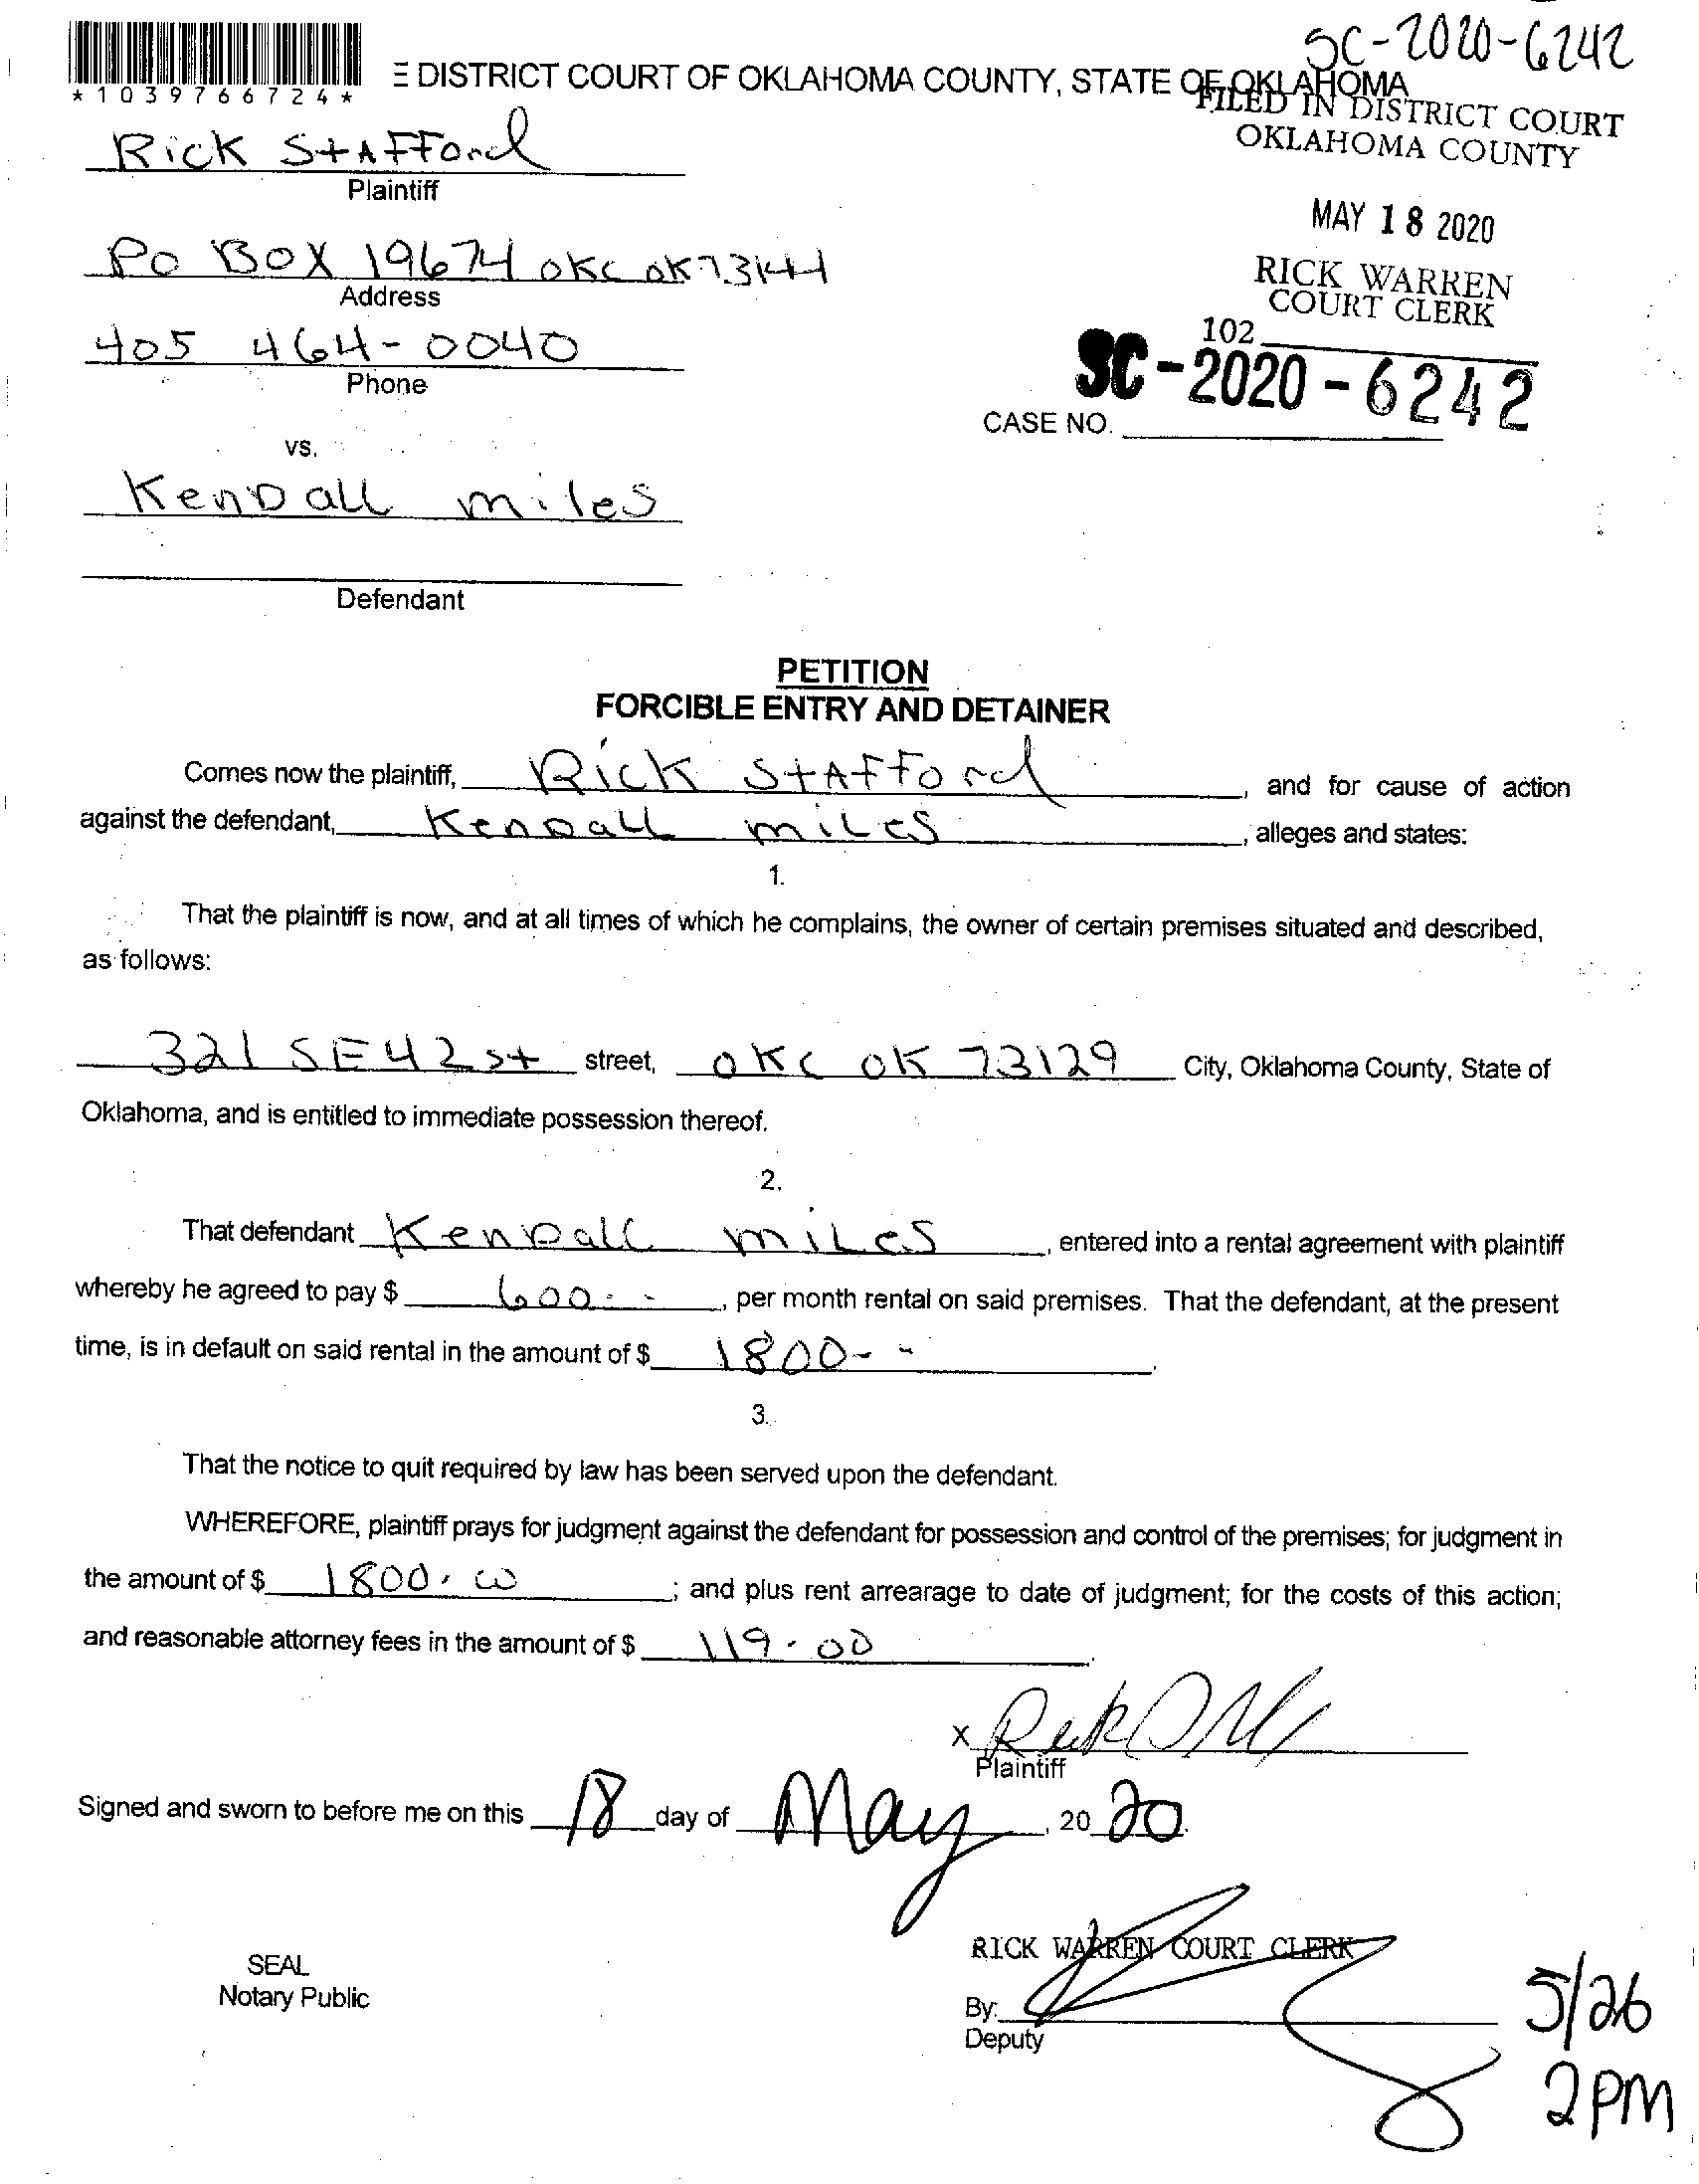 SC-2020-6242
*1039766724*
E DISTRICT COURT OF OKLAHOMA COUNTY, STATE OF OKLAHOMA
FILED IN DISTRICT COURT
OKLAHOMA COUNTY
Rick Stafford
Plaintiff
MAY 18 2020
PO BOX 19674 OKC OK 73144
Address
RICK WARREN
COURT CLERK
405 464-0040
Phone
102
SC-2020-6242
CASE NO.
vs.
Kendall miles
Defendant
PETITION
FORCIBLE ENTRY AND DETAINER
Comes now the plaintiff, Rick Stafford, and for cause of action
against the defendant, Kendall miles, alleges and states:
1.
That the plaintiff is now, and at all times of which he complains, the owner of certain premises situated and described,
as follows:
321 SE 42 st street, OKC OK 73129 City, Oklahoma County, State of
Oklahoma, and is entitled to immediate possession thereof.
2.
That defendant Kendall miles, entered into a rental agreement with plaintiff
whereby he agreed to pay $ 600--, per month rental on said premises. That the defendant, at the present
time, is in default on said rental in the amount of $ 1800--.
3.
That the notice to quit required by law has been served upon the defendant.
WHEREFORE, plaintiff prays for judgment against the defendant for possession and control of the premises; for judgment in
the amount of $ 1800.00; and plus rent arrearage to date of judgment; for the costs of this action;
and reasonable attorney fees in the amount of $ 119.00.
X
Plaintiff
Signed and sworn to before me on this 18 day of May, 2020.
RICK WARREN COURT CLERK
SEAL
Notary Public
By:
Deputy
5/26
2PM